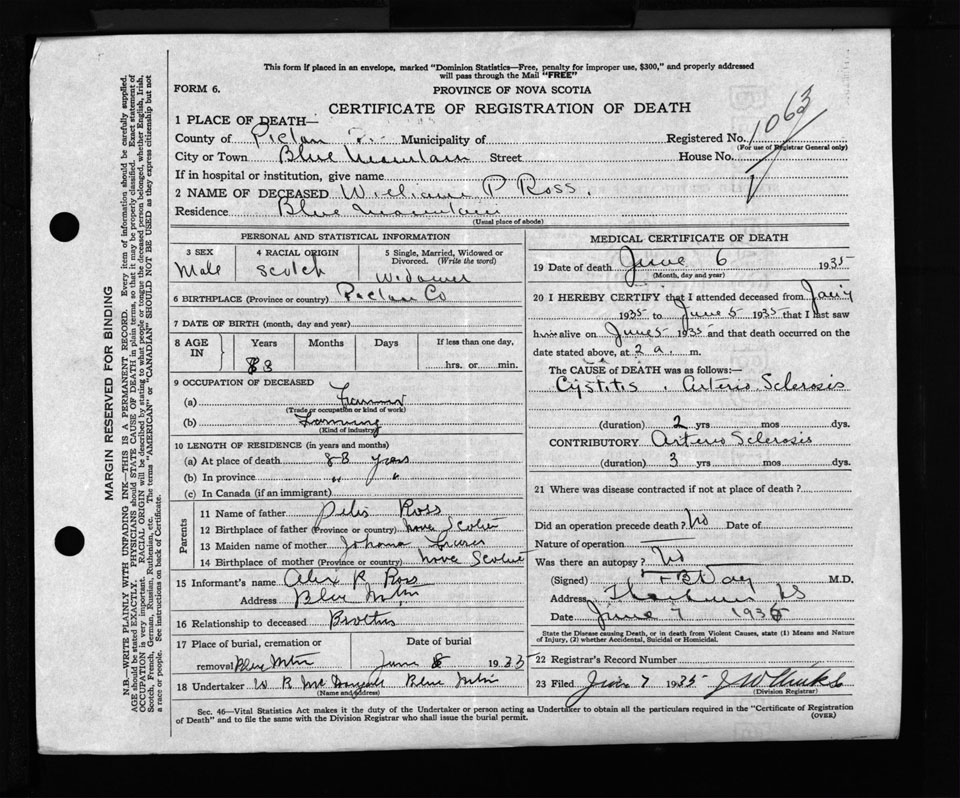 This form if placed in an envelope, marked "Dominion Statistics—Free, penalty for improper use, $300," and properly addressed
will pass through the Mail "FREE"
FORM 6.
PROVINCE OF NOVA SCOTIA
CERTIFICATE OF REGISTRATION OF DEATH
1 PLACE OF DEATH—
County of Pictou Municipality of Registered No. 1063
(For use of Registrar General only)
City or Town Blue Mountain Street House No.
If in hospital or institution, give name
2 NAME OF DECEASED William P Ross
Residence Blue Mountain
(Usual place of abode)
MARGIN RESERVED FOR BINDING
N.B.—WRITE PLAINLY WITH UNFADING INK—THIS IS A PERMANENT RECORD. Every item of information should be carefully supplied.
AGE should be stated EXACTLY. PHYSICIANS should STATE CAUSE OF DEATH in plain terms, so that it may be properly classified. Exact statement of
OCCUPATION is very important. RACIAL ORIGIN will be described by stating to what people or tongue the deceased person belonged, whether English, Irish,
Scotch, French, German, Russian, Ruthenian, etc. The terms "AMERICAN" or "CANADIAN" SHOULD NOT BE USED as they express citizenship but not
a race or people. See instructions on back of Certificate.
PERSONAL AND STATISTICAL INFORMATION
3 SEX
Male
4 RACIAL ORIGIN
Scotch
5 Single, Married, Widowed or
Divorced. (Write the word)
Widower
6 BIRTHPLACE (Province or country) Pictou Co
7 DATE OF BIRTH (month, day and year)
8 AGE IN
Years Months Days If less than one day,
83 hrs. or min.
9 OCCUPATION OF DECEASED
(a) Farmer
(Trade or occupation or kind of work)
(b) Farming
(Kind of industry)
10 LENGTH OF RESIDENCE (in years and months)
(a) At place of death 83 years
(b) In province " "
(c) In Canada (if an immigrant)
Parents
11 Name of father Ross
12 Birthplace of father (Province or country) Nova Scotia
13 Maiden name of mother Johana Fraser
14 Birthplace of mother (Province or country) Nova Scotia
15 Informant's name Alex R Ross
Address Blue Mtn
16 Relationship to deceased Brother
17 Place of burial, cremation or Date of burial
removal Blue Mtn June 8 1935
18 Undertaker W R McDonald Blue Mtn
(Name and address)
MEDICAL CERTIFICATE OF DEATH
19 Date of death June 6 1935
(Month, day and year)
20 I HEREBY CERTIFY that I attended deceased from Jan'y
1935 to June 5 1935 that I last saw
him alive on June 5 1935 and that death occurred on the
date stated above, at 2 a. m.
The CAUSE of DEATH was as follows:—
Cystitis. Arterio Sclerosis
(duration) 2 yrs mos. dys.
CONTRIBUTORY Arterio Sclerosis
(duration) 3 yrs mos dys.
21 Where was disease contracted if not at place of death?
Did an operation precede death? No Date of
Nature of operation
Was there an autopsy? No
(Signed) Day M.D.
Address NS
Date June 7 1935
State the Disease causing Death, or in death from Violent Causes, state (1) Means and Nature
of Injury, (2) whether Accidental, Suicidal or Homicidal.
22 Registrar's Record Number
23 Filed June 7 1935
(Division Registrar)
Sec. 46—Vital Statistics Act makes it the duty of the Undertaker or person acting as Undertaker to obtain all the particulars required in the "Certificate of Registration
of Death" and to file the same with the Division Registrar who shall issue the burial permit.
(OVER)